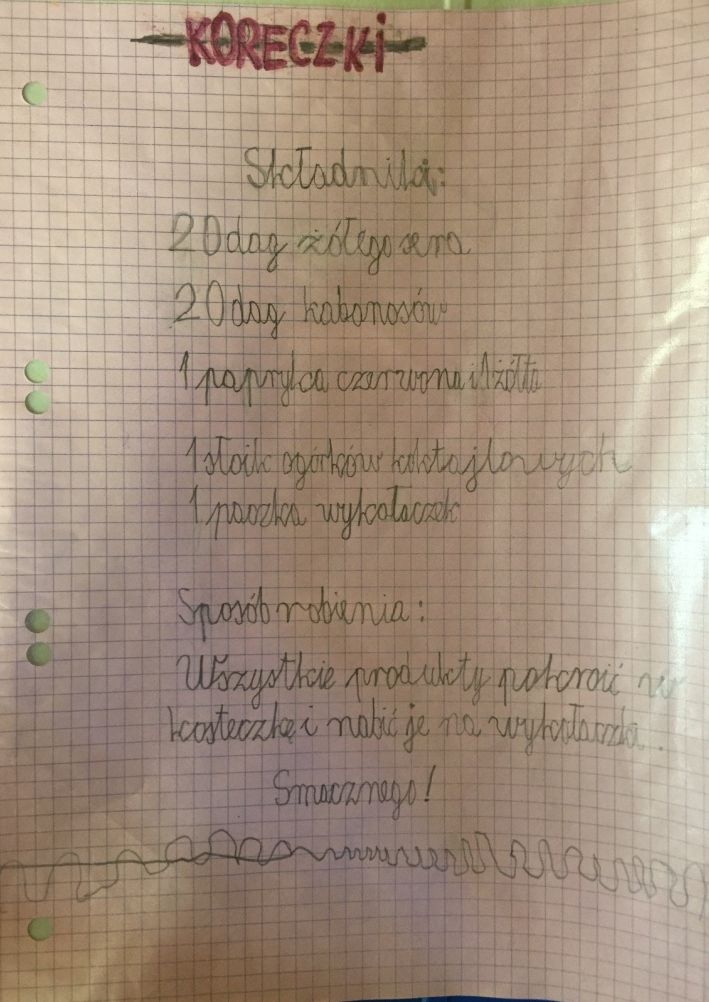 KORECZKi
Składniki:
20dag żółego sera
20dag kabanosów
1 papryka czerwona i 1 żółta
1 słoik ogórków koktajlowych
1 paczka wykałaczek
Sposób robienia:
Wszystkie produkty pokroić w
kosteczkę i nabić je na wykałaczki.
Smacznego!